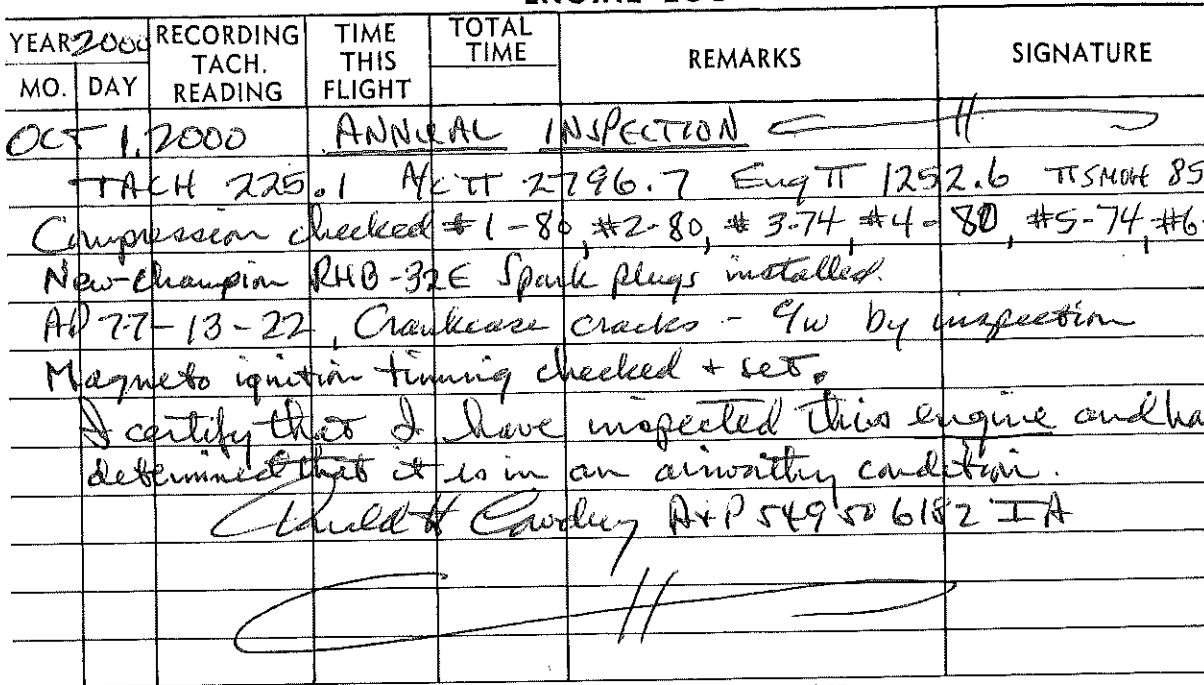 YEAR 2000 RECORDING TACH. READING TIME THIS FLIGHT TOTAL TIME REMARKS SIGNATURE
MO. DAY
OCT 1, 2000 ANNUAL INSPECTION
TACH 225.1 A/C TT 2796.7 Eng TT 1252.6 TTSMOH 85
Compression checked #1-80, #2-80, #3-74, #4-80, #5-74, #6-
New-Champion RHB-32E Spark plugs installed.
AD 77-13-22, Crankcase cracks - c/w by inspection
Magneto ignition timing checked + set.
I certify that I have inspected this engine and ha
determined that it is in an airworthy condition.
H A+P 549506182 IA